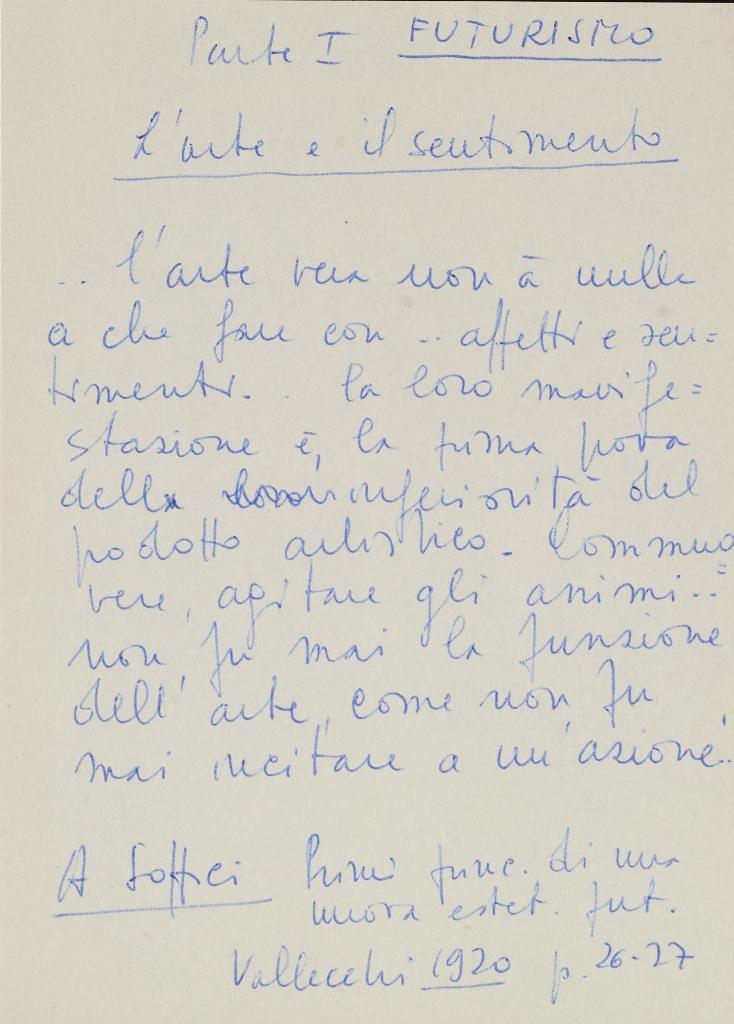 Parte I FUTURISMO
L'arte e il sentimento
.. l'arte vera non à nulla
a che fare con .. affetti e sen=
timenti. . la loro manife=
stazione è, la prima prova
della inferiorità del
prodotto artistico. Commuo
vere, agitare gli animi..=
non fu mai la funzione
dell'arte, come non fu
mai incitare a un'azione..
A Soffici Primi princ. di una
nuova estet. fut.
Vallecchi 1920 p. 26-27